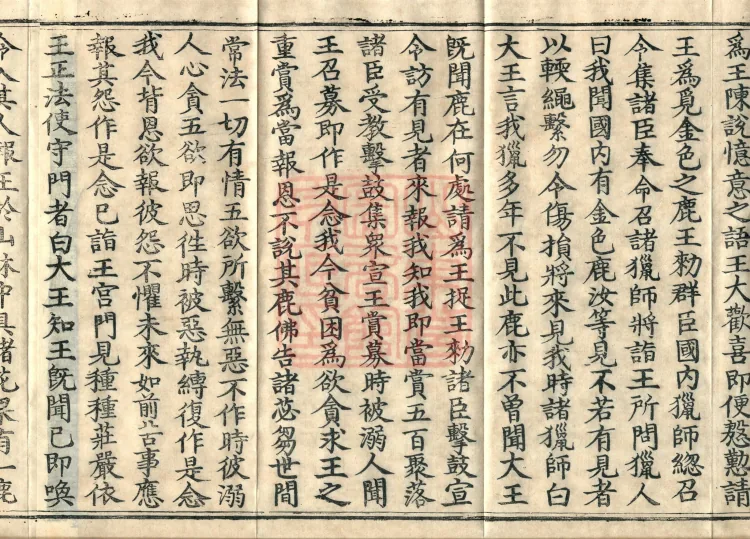 爲王陳說憶意之語王大歡喜即便慇懃請
王爲覓金色之鹿王勑群臣國內獵師緫召
令集諸臣奉命召諸獵師將詣王所問獵人
曰我聞國内有金色鹿汝等見不若有見者
以輭繩繫勿令傷損將來見我時諸獵師白
大王言我獵多年不見此鹿亦不曾聞大王
旣聞鹿在何處請爲王捉王勑諸臣擊鼓宣
令訪有見者來報我知我即當賞五百聚落
諸臣受教擊鼓集衆宣王賞募時被溺人聞
王召募即作是念我今貧困爲欲貪求王之
重賞爲當報恩不說其鹿佛告諸苾芻世間
常法一切有情五欲所繫無惡不作時彼溺
人心貪五欲即思徃時被惡執縛復作是念
我今背恩欲報彼怨不懼未來如前苦事應
報其怨作是念已詣王宮門見種種莊嚴依
王正法使守門者白大王知王旣聞已即喚
令入其人報王於山林中具諸花果有一鹿